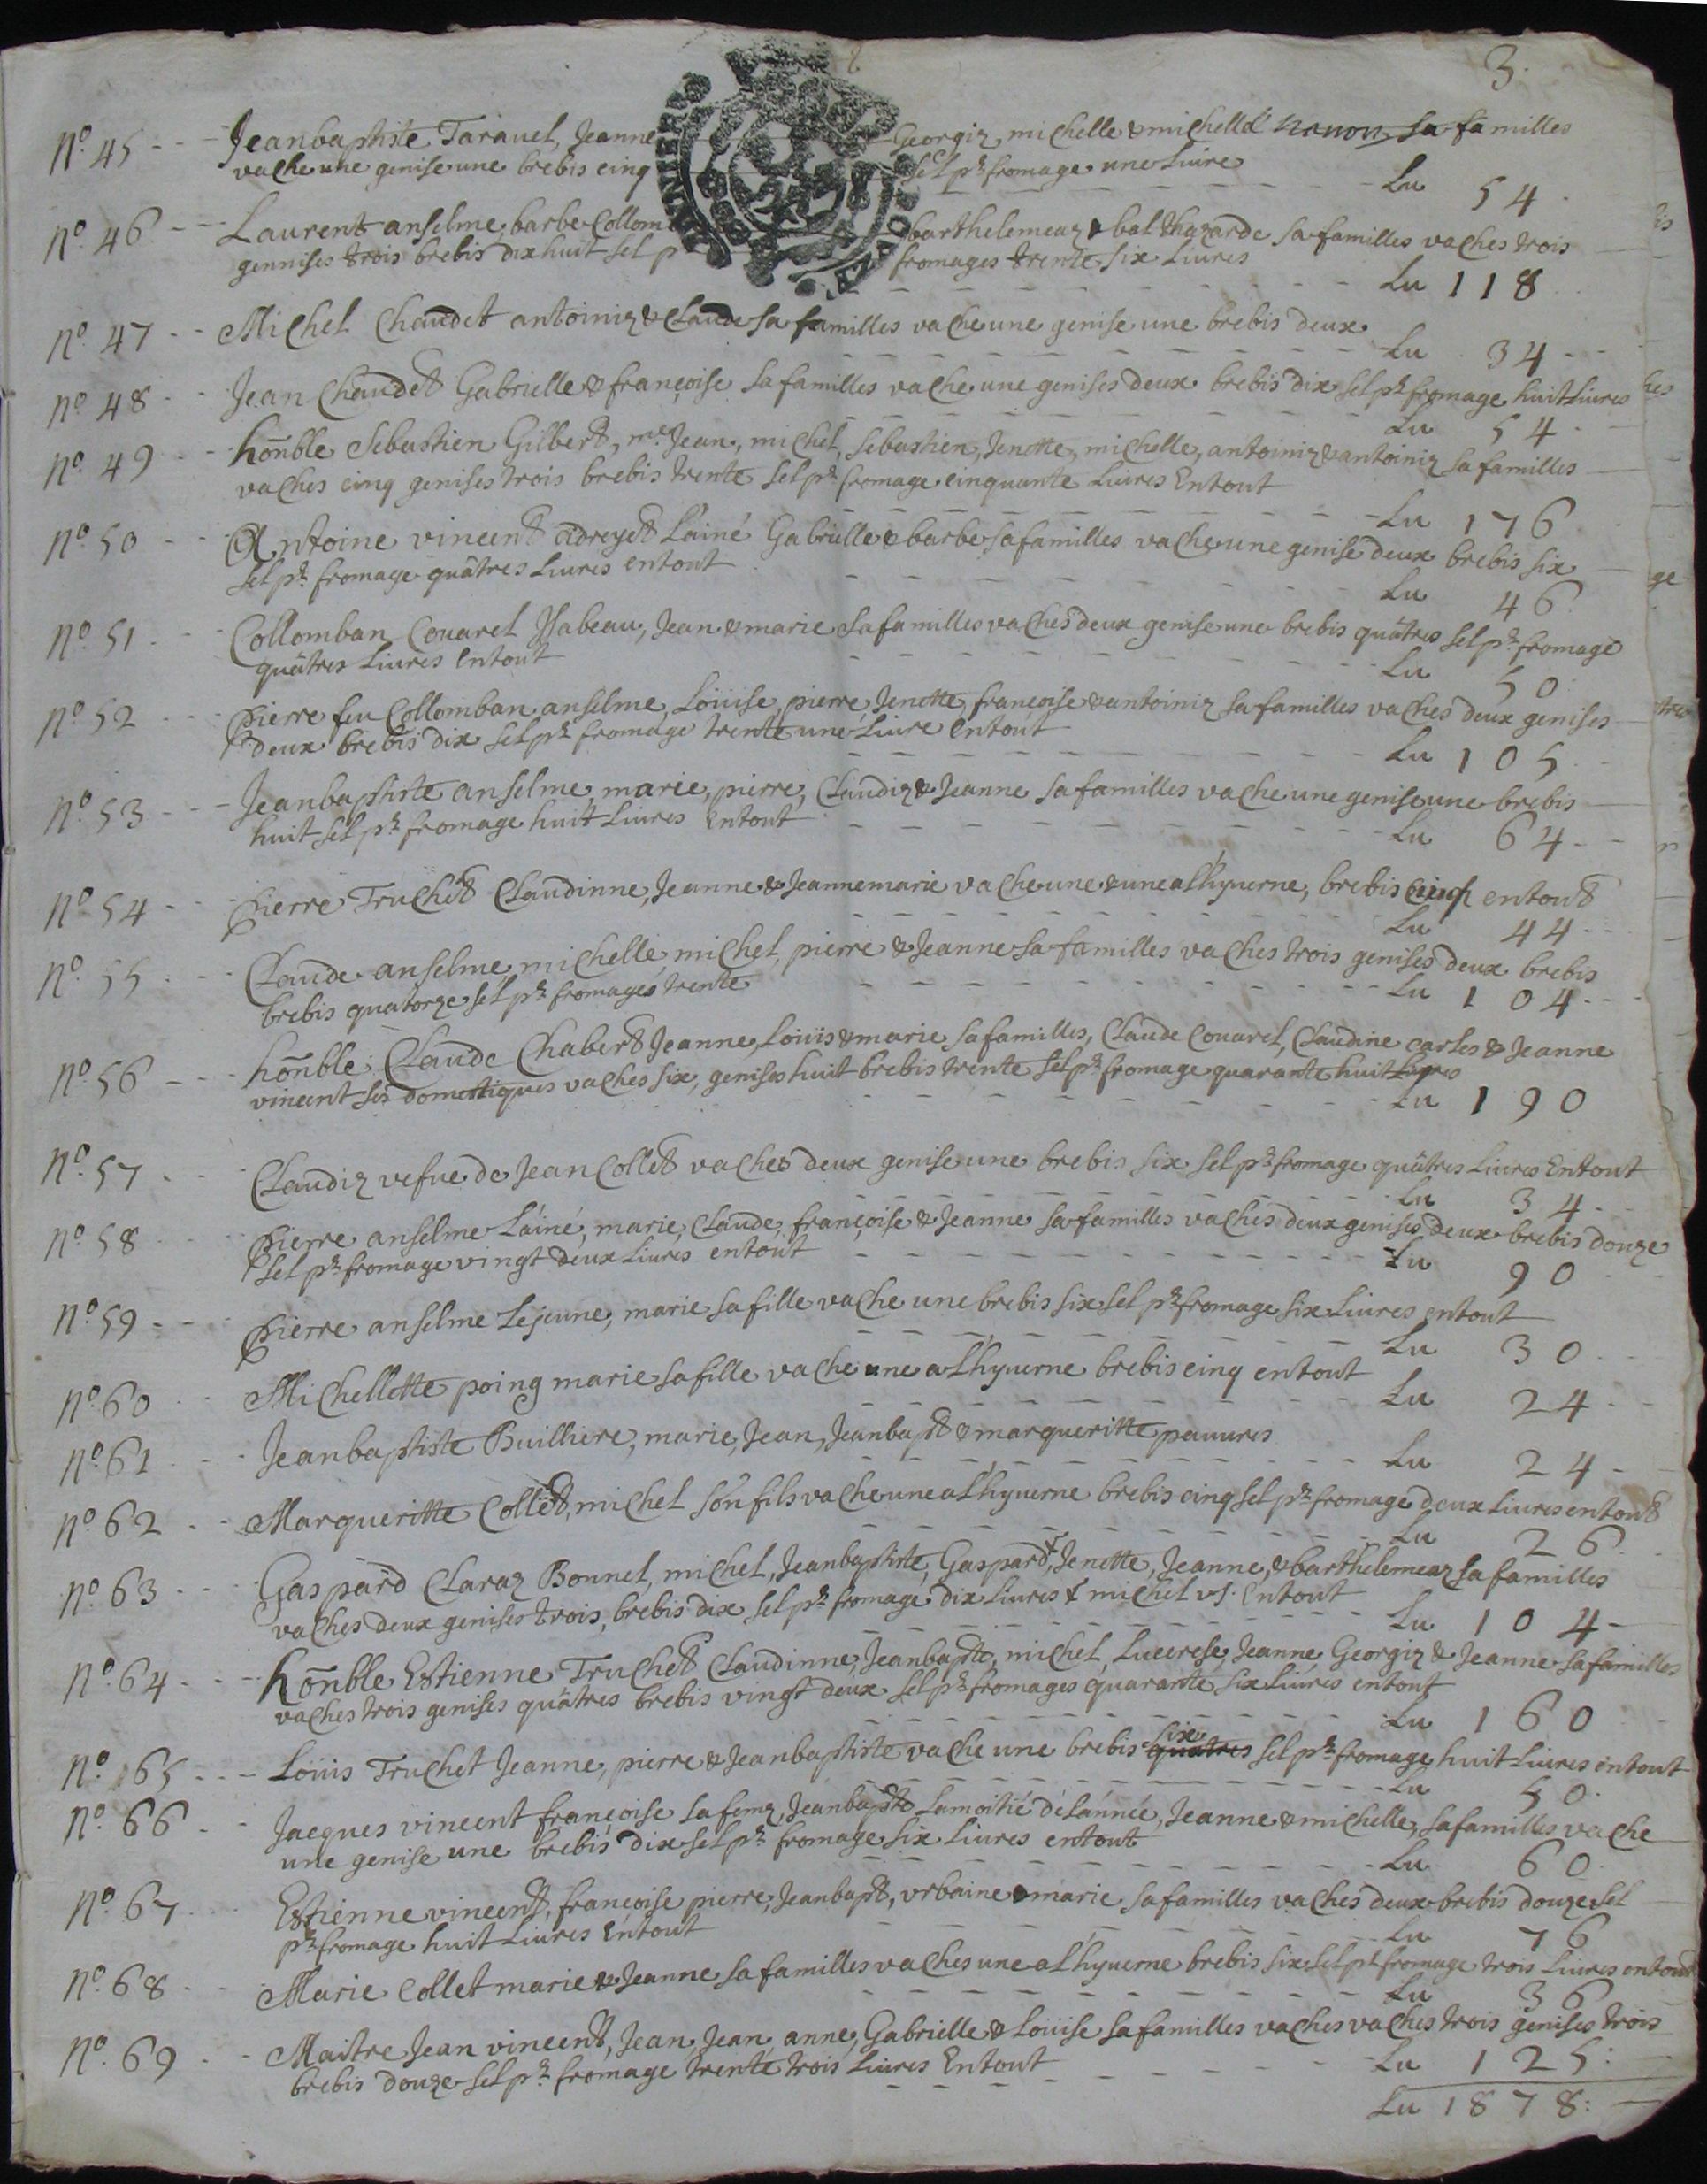 3.
N.º 45 Jeanbaptiste Tarauel, Jeanne Georgiz, michelle & michelle sa familles
vache une genise une brebis cinq sel p.r fromage une Liure
Lu 54
N.º 46 Laurent anselme, barbe Collom barthelemeaz & balthazarde sa familles vaches trois
gennises trois brebis dixhuit sel p fromages trente six Liures
Lu 118
N.º 47 Michel Chaudet antoiniz & Claude sa familles vache une genise une brebis deux
Lu 34
N.º 48 Jean Chaudet Gabrielle & françoise sa familles vache une genises deux brebis dix sel p.r fromage huit Liures
Lu 54
N.º 49 honnble Sebastien Gilbert, m.e Jean, michel, Sebastien, Jenette, michelle, antoiniz & antoiniz sa familles
vaches cinq genises trois brebis trente sel p.r fromage cinquante Liures Entout
Lu 176
N.º 50 Antoine vincent adreyet Lainé Gabrielle & barbe sa familles vache une genise deux brebis six
sel p.r fromage quâtres Liures entout
Lu 46
N.º 51 Collomban Couarel Ysabeau, Jean & marie sa familles vaches deux genise une brebis quâtres sel p.r fromage
quâtres Liures Entout
Lu 50
N.º 52 Pierre feu Collomban anselme, Loüise, pierre, Jenette, françoise & antoiniz sa familles vaches deux genises
deux brebis dix sel p.r fromage trente une Liure Entout
Lu 105
N.º 53 Jeanbaptiste anselme marie, pierre, Claudiz & Jeanne sa familles vache une genise une brebis
huit sel p.r fromage huit Liures Entout
Lu 64
N.º 54 Pierre Truchet Claudinne, Jeanne & Jeannemarie vache une & une a L'hyuerne, brebis cinq entout
Lu 44
N.º 55 Claude anselme michelle, michel, pierre & Jeanne sa familles vaches trois genises deux brebis
brebis quatorze sel p.r fromages trente
Lu 104
N.º 56 honnble Claude Chabert Jeanne, Loüis & marie sa familles, Claude Couarel, Claudine carles & Jeanne
vincent ses domestiques vaches six, genises huit brebis trente sel p.r fromage quarante huit Liures
Lu 190
N.º 57 Claudiz vefue de Jean Collet vaches deux genise une brebis six sel p.r fromage quâtres Liures Entout
Lu 34
N.º 58 Pierre anselme Lainé, marie, Claude, françoise & Jeanne sa familles vaches deux genises deux brebis douze
sel p.r fromage vingt deux Liures entout
Lu 90
N.º 59 Pierre anselme Lejeune, marie sa fille vache une brebis six sel p.r fromage six Liures entout
Lu 30
N.º 60 Michellette poing marie sa fille vache une a L'hyuerne brebis cinq entout
Lu 24
N.º 61 Jeanbaptiste Buillhiere, marie, Jean, Jeanbapt & margueritte pauures
Lu 24
N.º 62 Margueritte Collet, michel son fils vache une a L'hyuerne brebis cinq sel p.r fromage deux Liures entout
Lu 26
N.º 63 Gaspard Claraz Bonnel, michel, Jeanbaptiste, Gaspard, Jenette, Jeanne, & barthelemeaz sa familles
vaches deux genises trois, brebis dix sel p.r fromage dix Liures & michel vs. Entout
Lu 104
N.º 64 honnble Estienne Truchet Claudinne, Jeanbapte, michel, Lucrese, Jeanne, Georgiz & Jeanne sa familles
vaches trois genises quâtres brebis vingt deux sel p.r fromages quarante six Liures entout
Lu 160
N.º 65 Loüis Truchet Jeanne, pierre & Jeanbaptiste vache une brebis quatres six sel p.r fromage huit Liures entout
Lu 50
N.º 66 Jacques vincent françoise sa femz, Jeanbapte Lamoitié de Lánnée, Jeanne & michelle, sa familles vache
une genise une brebis dix sel p.r fromage six Liures entout
Lu 60
N.º 67 Estienne vincent, françoise pierre, Jeanbapt, vrbaine & marie sa familles vaches deux brebis douze sel
p.r fromage huit Liures Entout
Lu 76
N.º 68 Marie Collet marie & Jeanne sa familles vaches une a L'hyuerne brebis six sel p.r fromage trois Liures entout
Lu 36
N.º 69 Maitre Jean vincent, Jean, Jean, anne, Gabrielle & Loüise sa familles vaches vaches trois genises trois
brebis douze sel p.r fromage trente trois Liures Entout
Lu 125:
Lu 1878: